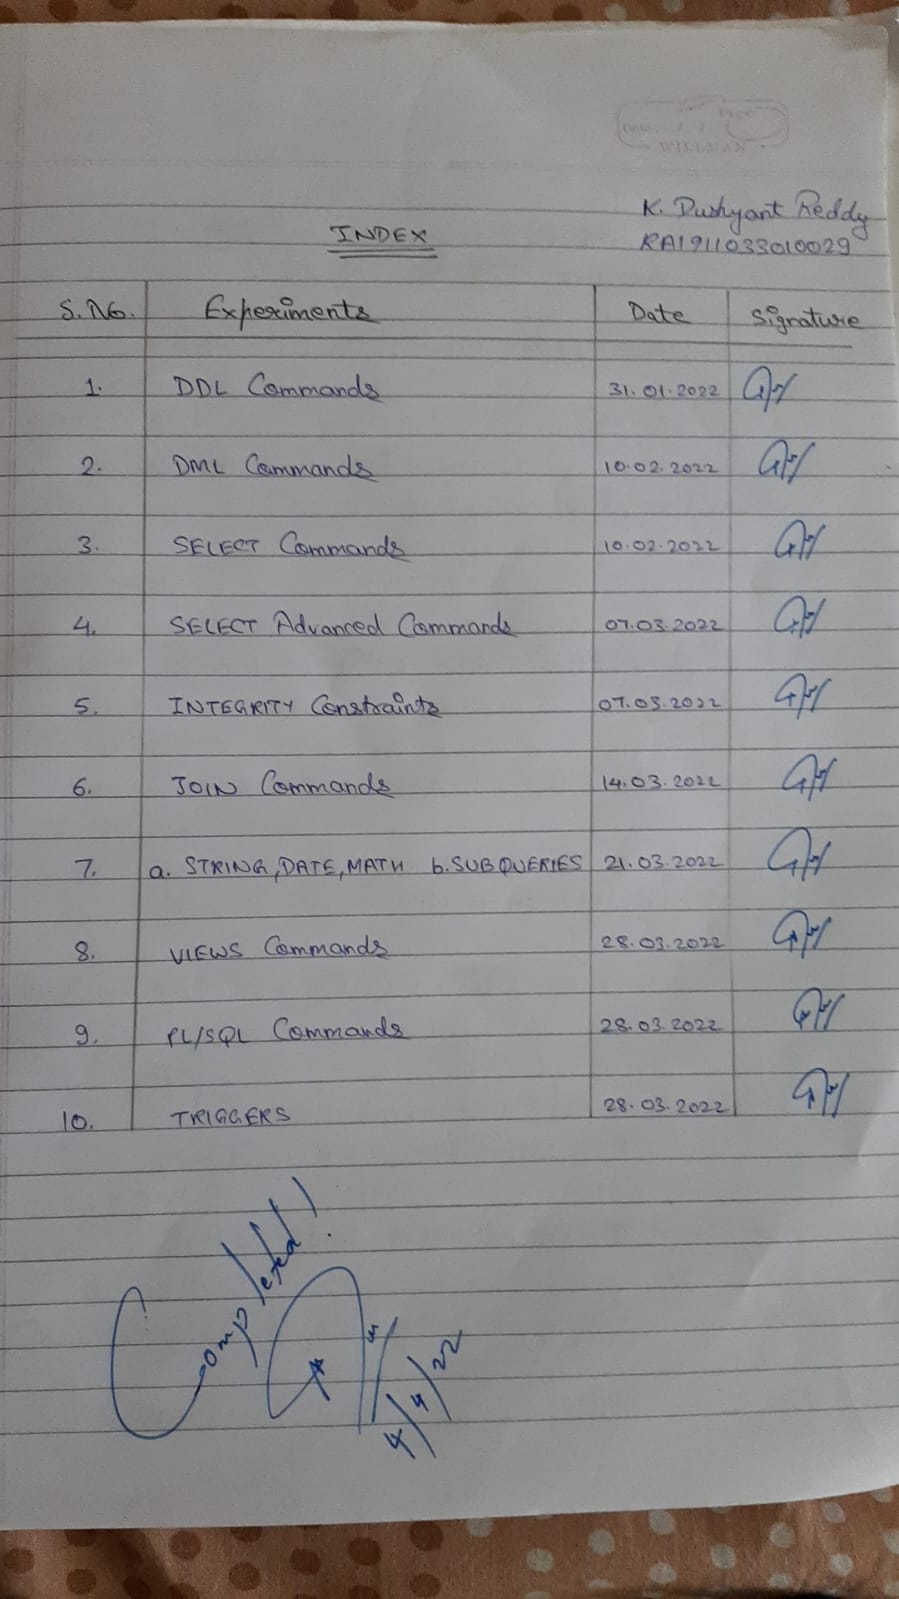 WILLMAN
K. Dushyant Reddy
RA1911033010029
INDEX
S.No. Experiments Date Signature
1. DDL Commands 31.01.2022
2. DML Commands 10.02.2022
3. SELECT Commands 10.02.2022
4. SELECT Advanced Commands 07.03.2022
5. INTEGRITY Constraints 07.03.2022
6. JOIN Commands 14.03.2022
7. a. STRING, DATE, MATH b. SUB QUERIES 21.03.2022
8. VIEWS Commands 28.03.2022
9. PL/SQL Commands 28.03.2022
10. TRIGGERS 28.03.2022
Completed!
4/4/22